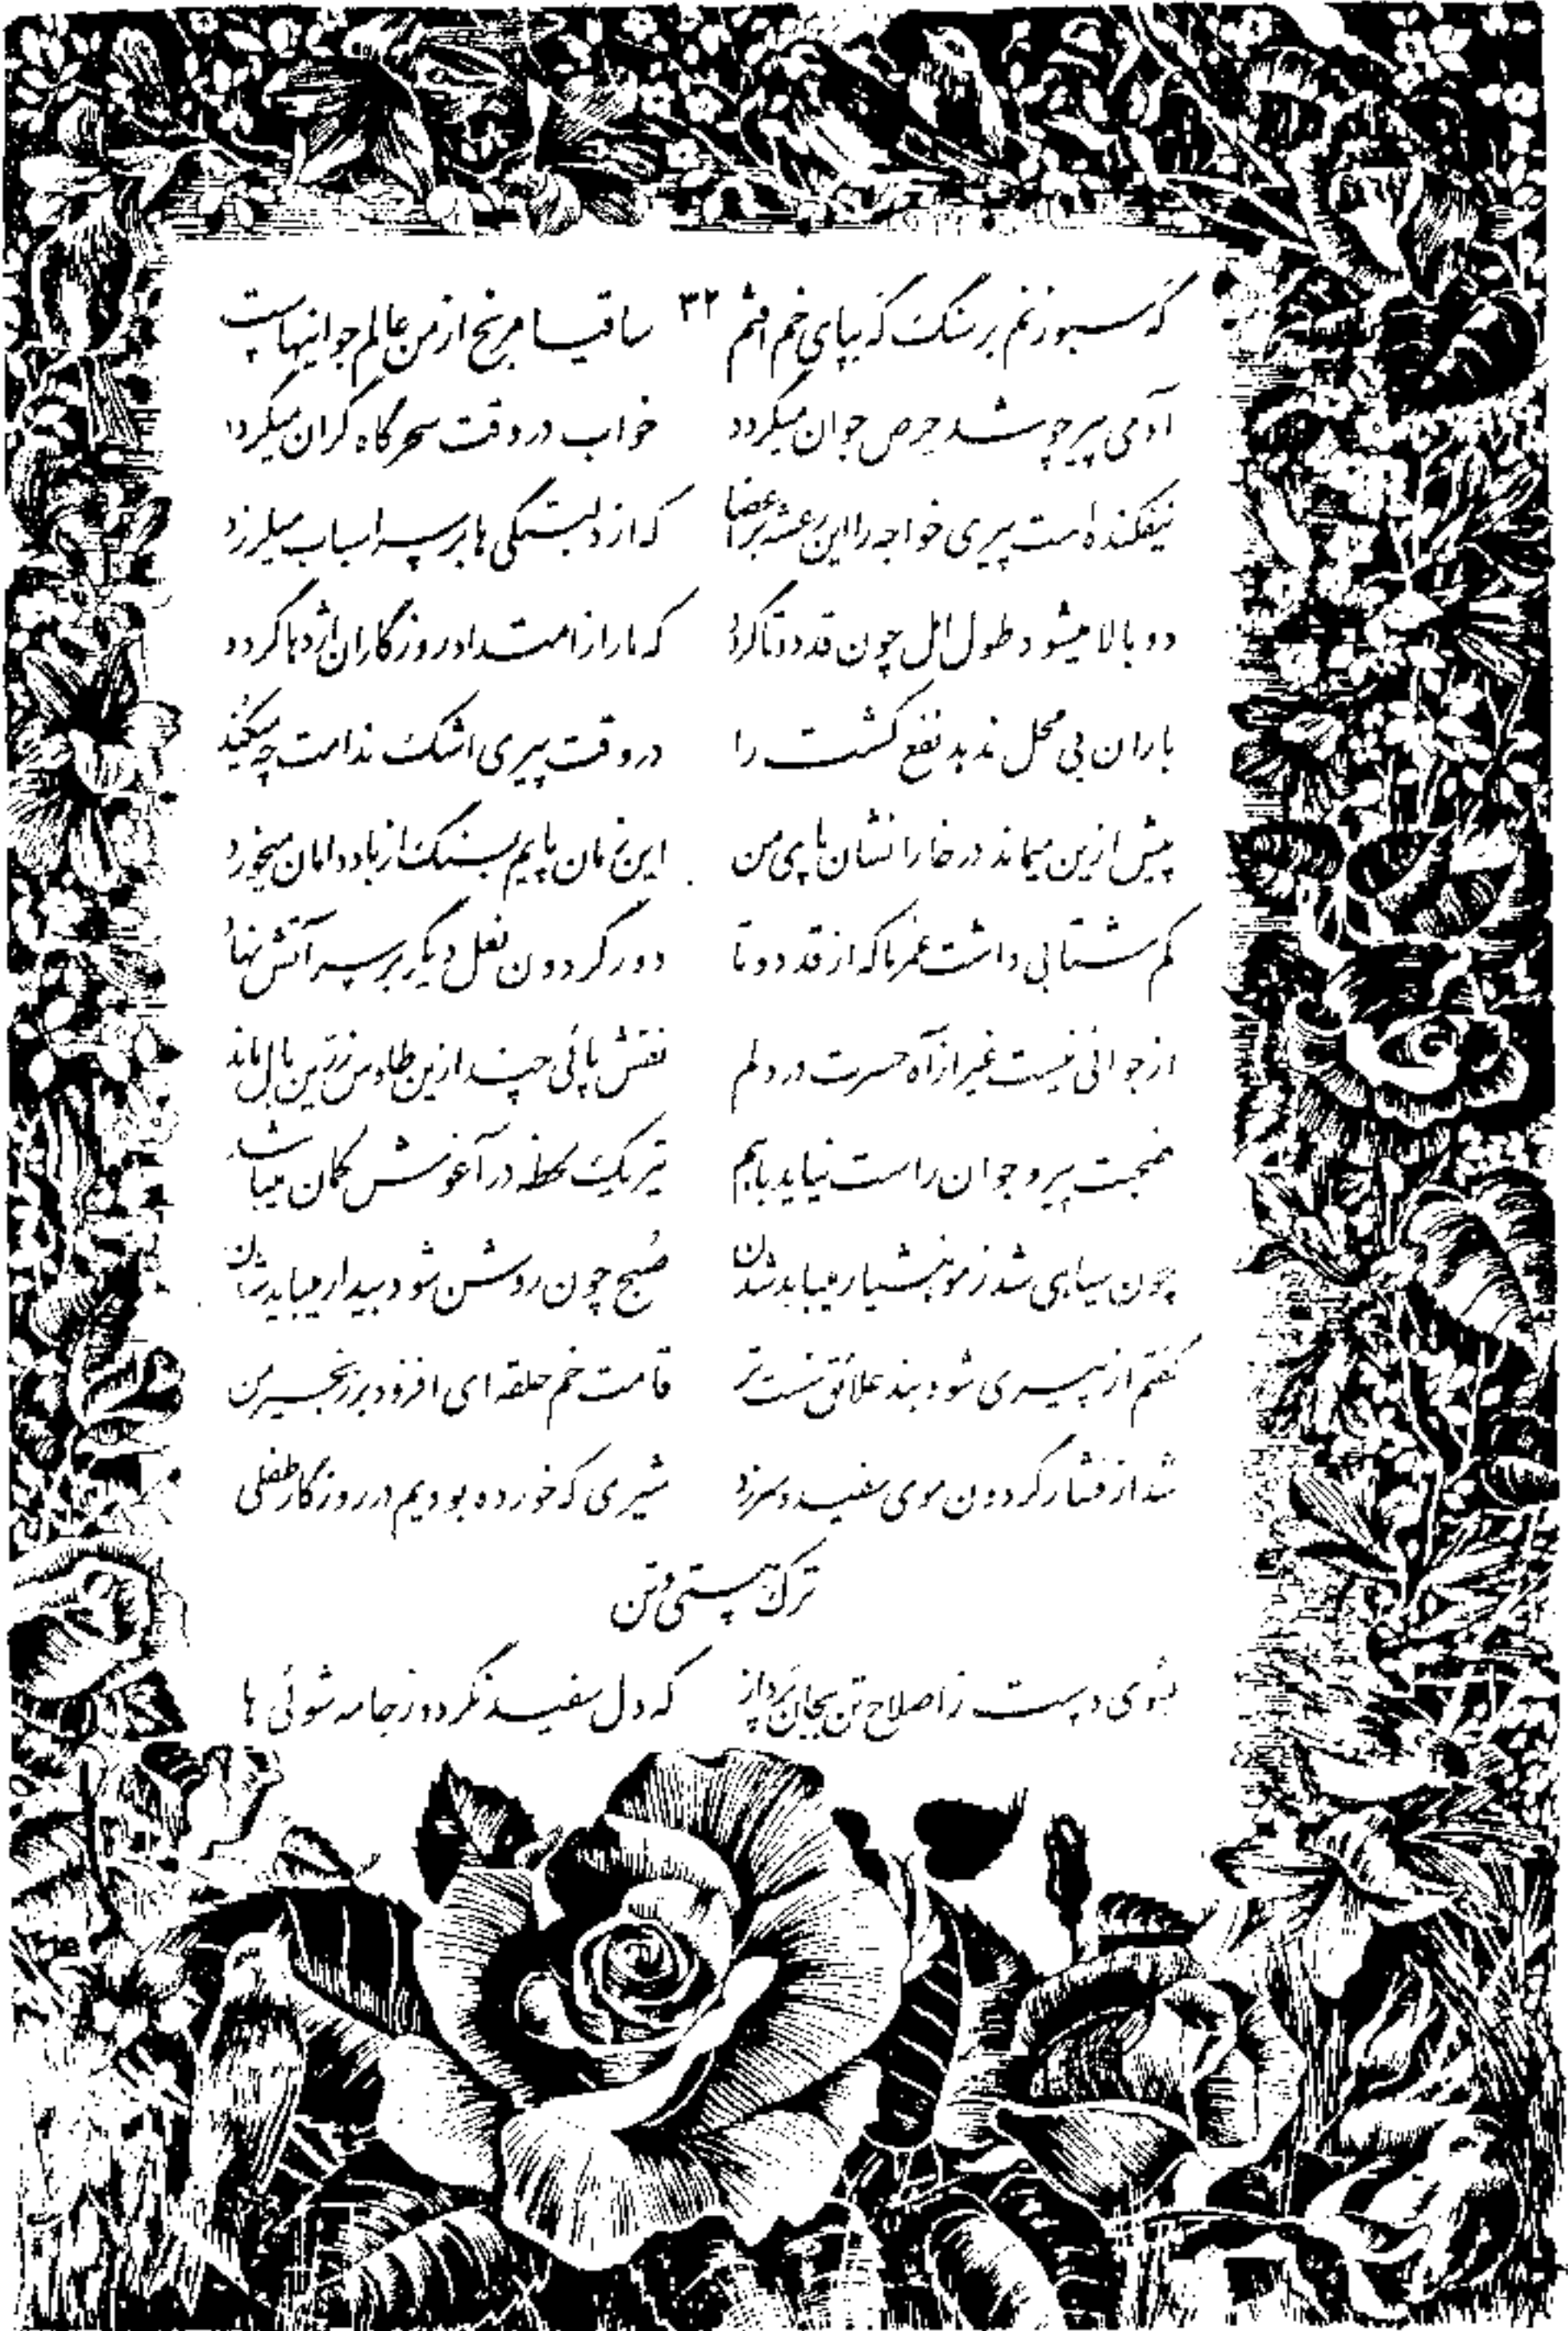 گه سبو زنم بر سنگ گه بپای خم افتم ۳۲ ساقیا مرنج از من عالم جوانیهاست
آدمی پیر چو شد حرص جوان میگردد خواب در وقت سحرگاه گران میگردد
نیفکنده است پیری خواجه را این رعشه بر اعضا که از دلبستگی ها بر سر اسباب میلرزد
دو بالا میشود طول امل چون قد دو تا گردد که مار از امتداد روزگاران اژدها گردد
باران بی محل ندهد نفع کشت را در وقت پیری اشک ندامت چه میکند
پیش ازین میماند در خارا نشان پای من این زمان پایم بسنگ از باد دامان میخورد
کم شتابی داشت عمر ما که از قد دو تا دور گردون نعل دیگر بر سر آتش نهاد
از جوانی نیست غیر از آه حسرت در دلم نقش پائی چند ازین طاوس زرین بال ماند
صحبت پیر و جوان راست نیاید باهم تیر یک لحظه در آغوش کمان میباشد
چون سیاهی شد ز مو هشیار میباید شدن صبح چون روشن شود بیدار میباید شدن
گفتم از پیری شود بند علائق سست تر قامت خم حلقه ای افزود بر زنجیر من
شد از فشار گردون موی سفید و سر زد شیری که خورده بودیم در روزگار طفلی
ترک هستی و تن
بشوی دست ز اصلاح تن بجان پرداز که دل سفید نگردد ز جامه شوئی ها